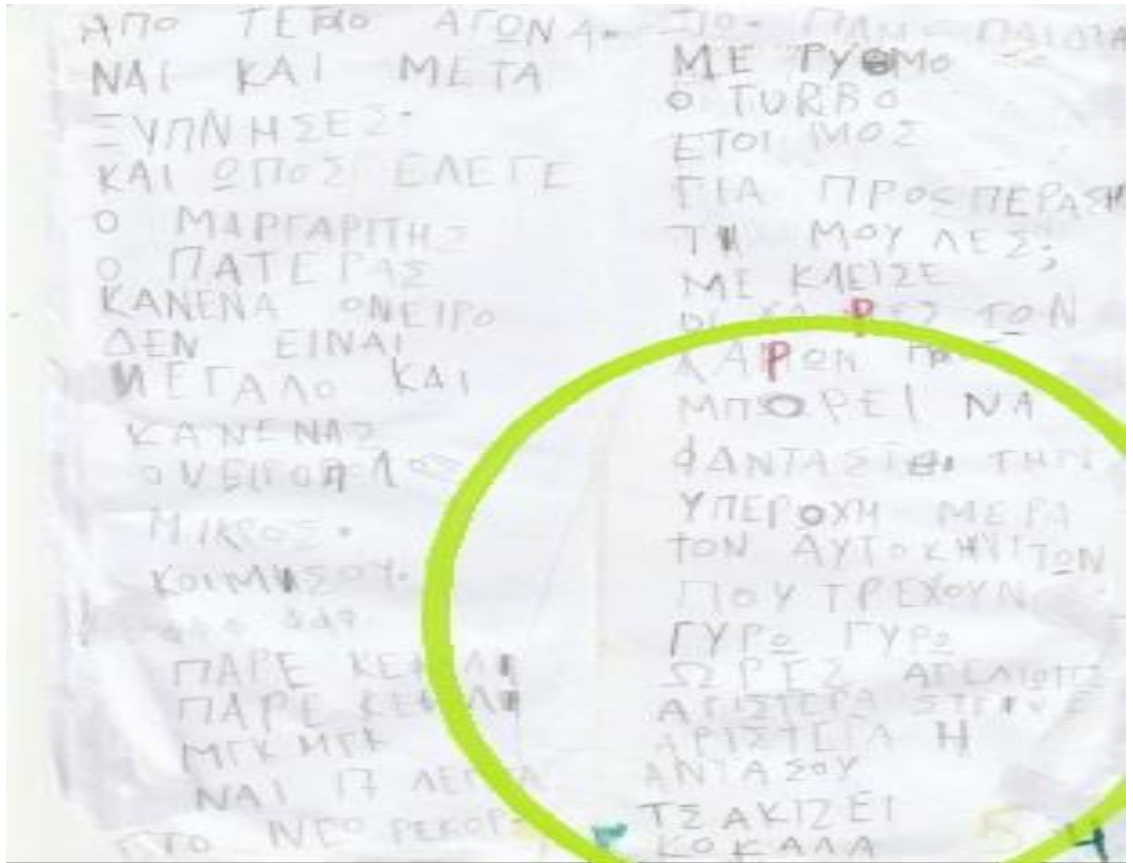 ΑΠΟ ΤΕΤΟΙΟ ΑΓΩΝΑ
ΝΑΙ ΚΑΙ ΜΕΤΑ
ΞΥΠΝΗΣΕΣ.
ΚΑΙ ΩΠΟΣ ΕΛΕΓΕ
Ο ΜΑΡΓΑΡΙΤΗΣ
Ο ΠΑΤΕΡΑΣ
ΚΑΝΕΝΑ ΟΝΕΙΡΟ
ΔΕΝ ΕΙΝΑΙ
ΜΕΓΑΛΟ ΚΑΙ
ΚΑΝΕΝΑΣ
ΜΙΚΡΟΣ.
ΚΟΙΜΗΣΟΥ.
ΠΑΡΕ ΚΕΦΑΛΙ
ΠΑΡΕ ΚΕΦΑΛΙ
ΜΓΚ ΜΓΚ
ΝΑΙ 17 ΛΕΠΤΑ
ΝΕΟ ΡΕΚΟΡ
ΜΕ ΡΥΘΜΟ
Ο TURBO
ΕΤΟΙΜΟΣ
ΓΙΑ ΠΡΟΣΠΕΡΑΣΗ
ΤΙ ΜΟΥ ΛΕΣ;
ΜΕ ΚΛΕΙΣΕ
ΟΙ ΧΑΡΕΣ ΤΩΝ
ΧΑΡΩΝ
ΜΠΟΡΕΙ ΝΑ
ΦΑΝΤΑΣΤΕΙ ΤΗΝ
ΥΠΕΡΟΧΗ ΜΕΡΑ
ΤΟΝ ΑΥΤΟΚΗΝΙΤΩΝ
ΠΟΥ ΤΡΕΧΟΥΝ
ΓΥΡΩ ΓΥΡΩ
ΩΡΕΣ
ΑΡΙΣΤΕΡΑ
ΑΡΙΣΤΕΡΑ Η
ΑΝΤΑ ΣΟΥ
ΤΣΑΚΙΖΕΙ
ΚΟΚΑΛΑ